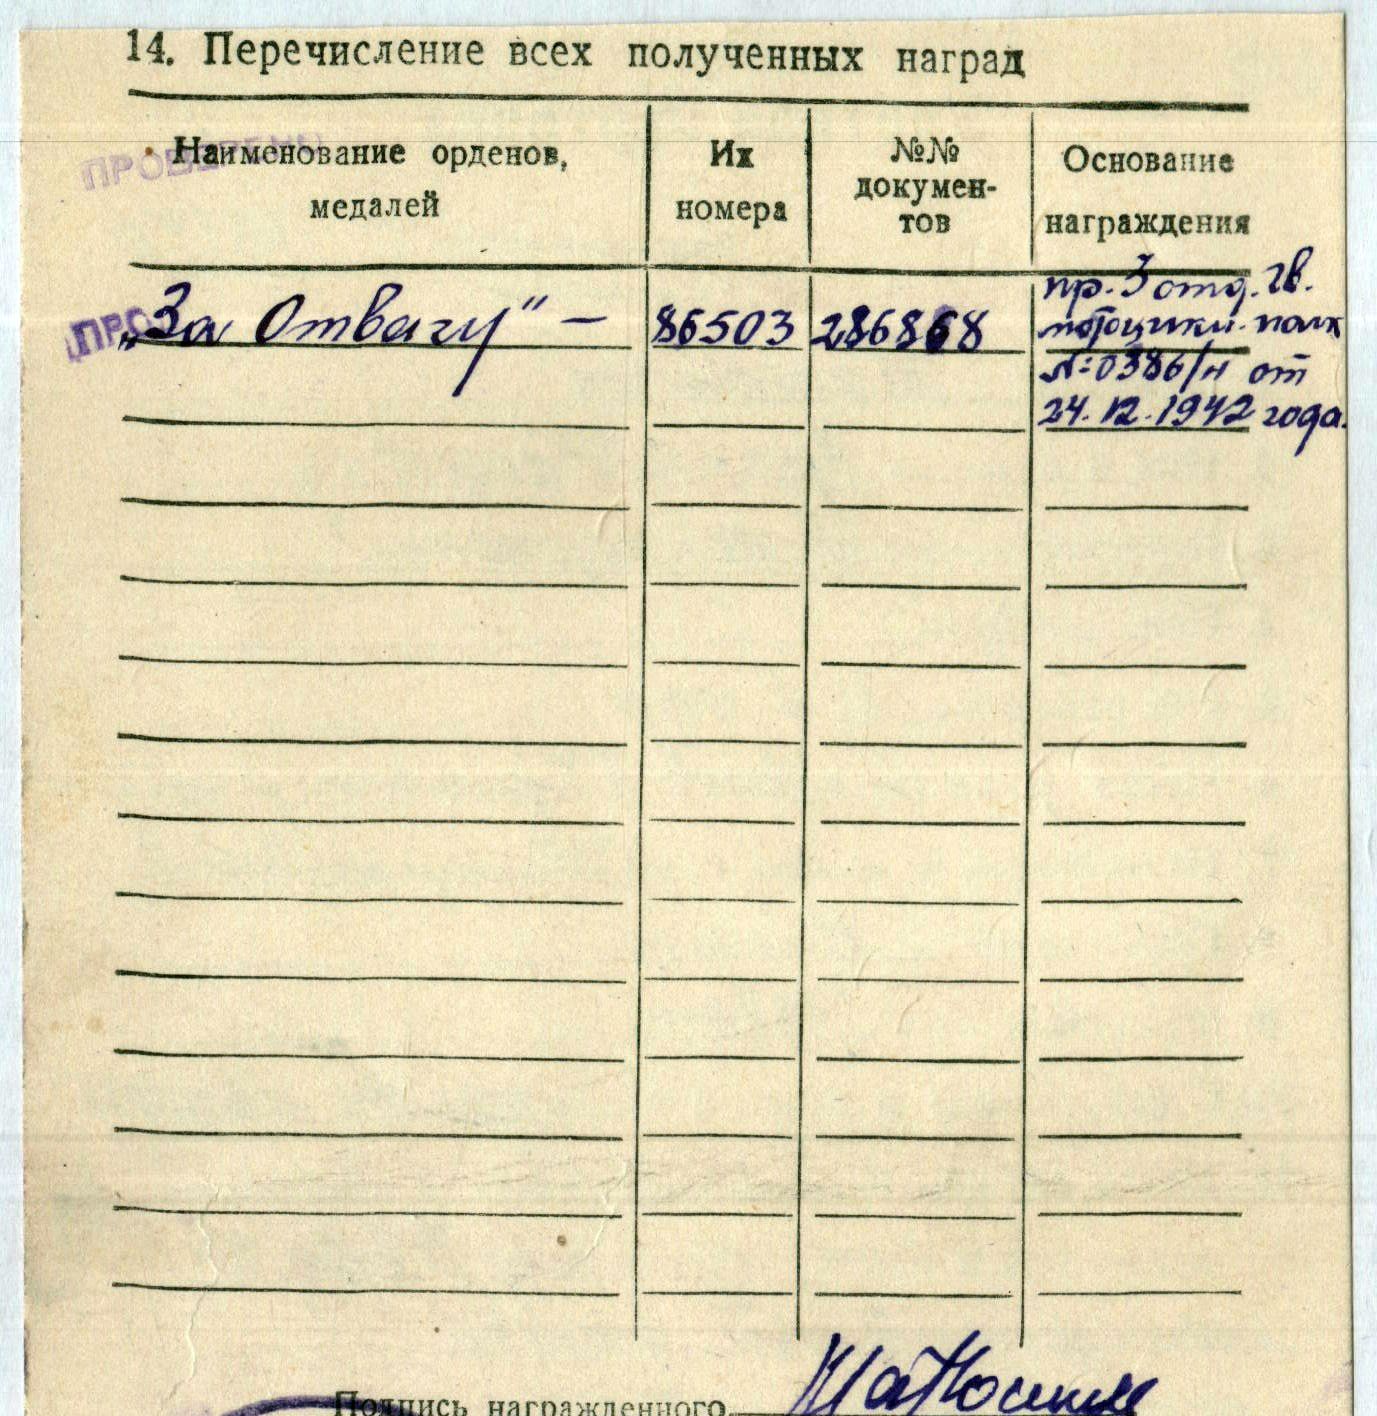 14. Перечисление всех полученных наград
ПРОВЕРЕНО
Наименование орденов, медалей
Их номера
№№ докумен-
тов
Основание награждения
ПРО
„За Отвагу" –
86503
286868
пр. 3 отд. гв.
мотоцикл. полк
№ 0386/н от
24.12.1942 года.
Подпись награжденного